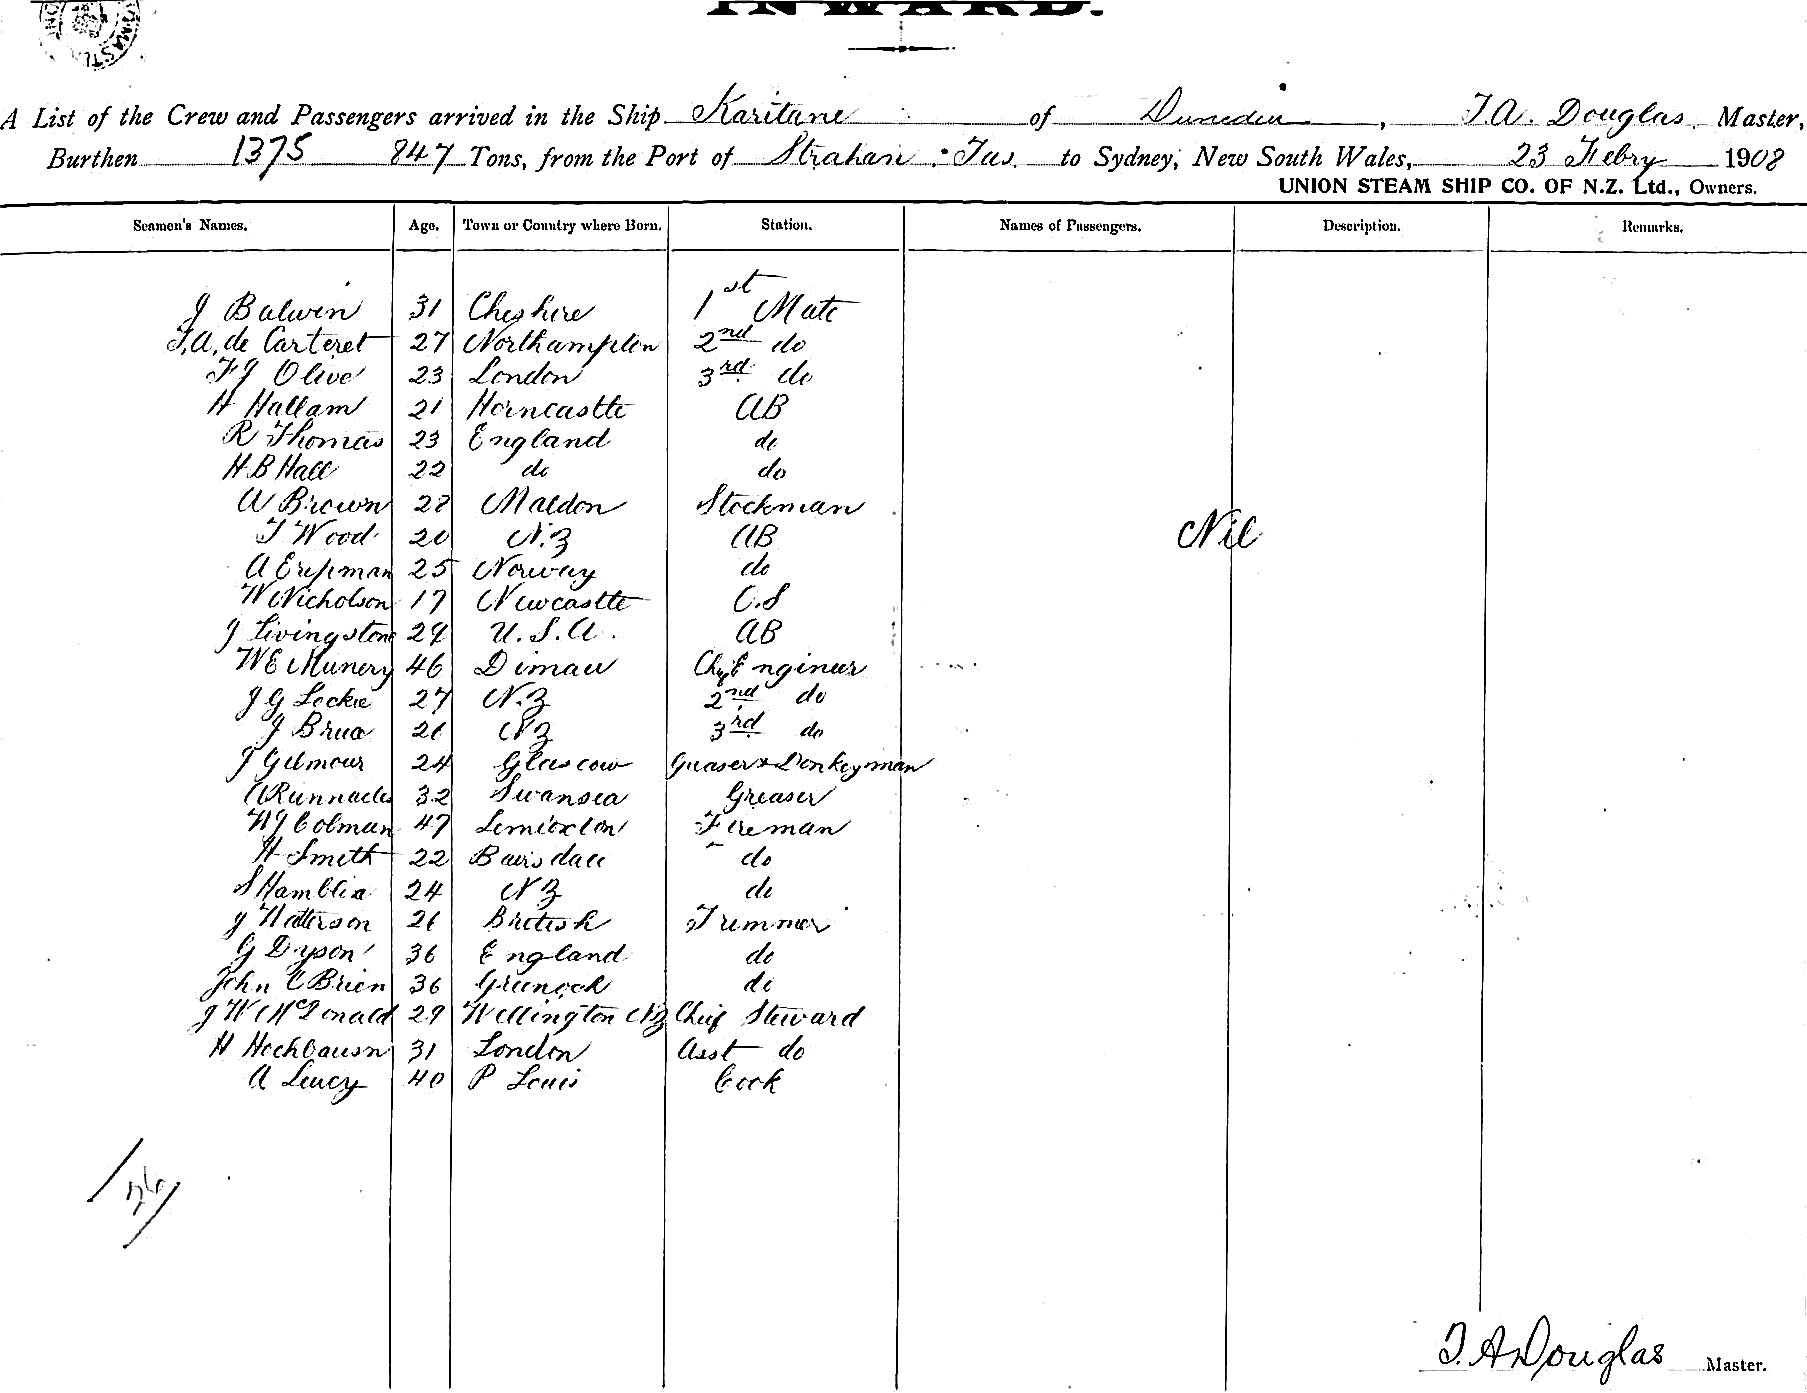 INWARD.
A List of the Crew and Passengers arrived in the Ship Karitane of Dunedin, T.A. Douglas. Master,
Burthen 1375 847 Tons, from the Port of Strahan. Tas. to Sydney, New South Wales, 23 Febry 1908
UNION STEAM SHIP CO. OF N.Z. Ltd., Owners.
Seamen's Names. Age. Town or Country where Born. Station. Names of Passengers. Description. Remarks.
J Balwin 31 Cheshire 1st Mate
T.A. de Carteret 27 Northampton 2nd do
F J Olive 23 London 3rd do
H Hallam 21 Horncastle AB
R Thomas 23 England do
H B Hall 22 do do
A Brown 28 Maldon Stockman
T Wood 20 N.Z AB
Nil
A 25 Norway do
W Nicholson 17 Newcastle O.S
J Livingstone 29 U.S.A. AB
W E 46 Chief Engineer
J G Lockie 27 N.Z 2nd do
J Bruce 26 NZ 3rd do
J Gilmour 24 Glascow Greaser & Donkeyman
A Runnacles 32 Swansea Greaser
W J Colman 47 Fireman
H Smith 22 Bairsdale do
S Hamblin 24 NZ do
J 26 British Trimmer
G Dyson 36 England do
John O Brien 36 Greenock do
J W McDonald 29 Wellington NZ Chief Steward
H 31 London Asst do
A Leucy 40 P Louis Cook
T. A Douglas Master.